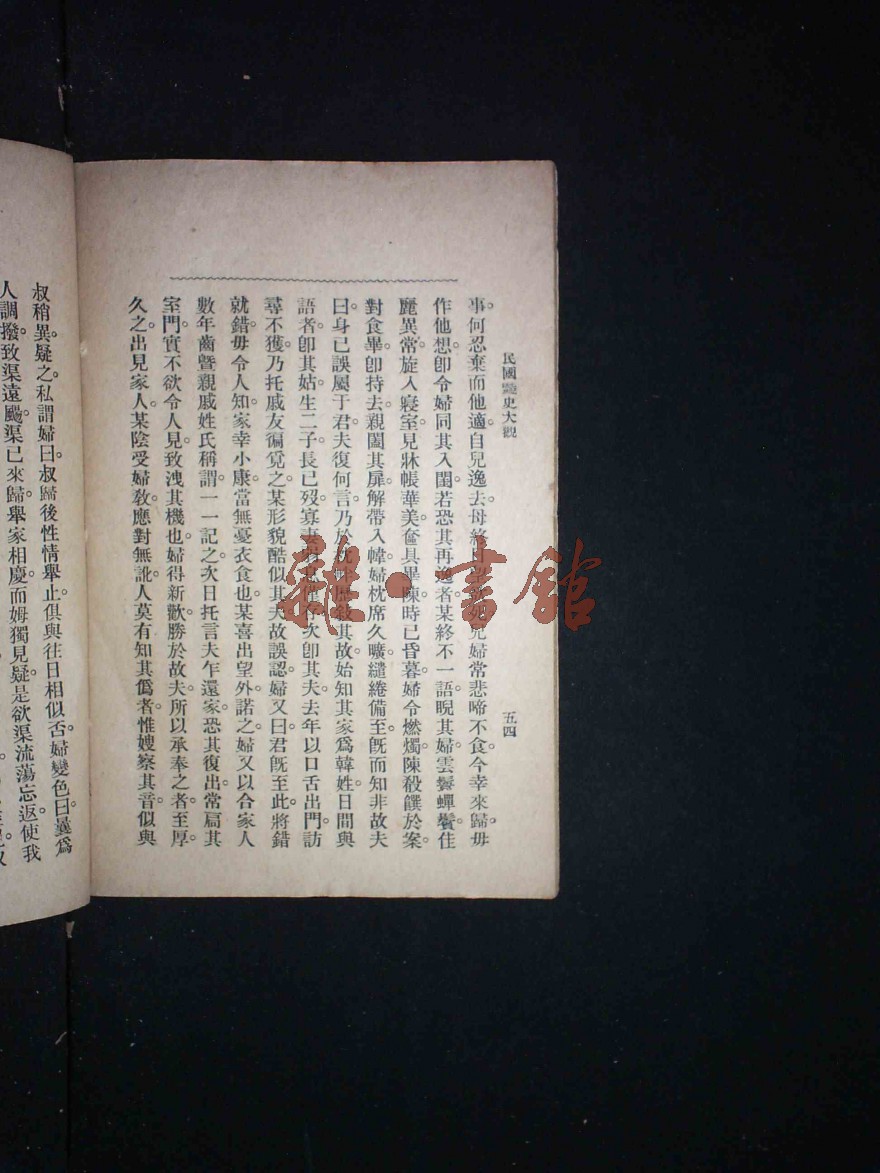 民國艷史大觀
五四
事。何忍棄而他適。自兒逸去。母終日望欲死。兒婦常悲啼不食。今幸來歸。毋
作他想。卽令婦同其入閨。若恐其再逸者。某終不一語。睨其婦。雲鬟蟬鬢。佳
麗異常。旋入寢室。見牀帳華美。奩具畢陳。時已昏暮。婦令燃燭。陳殽饌於案。
對食畢。卽持去。親闔其扉。解帶入幃。婦枕席久曠。繾綣備至。旣而知非故夫。
曰。身已誤屬于君。夫復何言。乃於枕畔歷敍其故。始知其家爲韓姓。日間與
語者。卽其姑。生二子。長已歿。寡妻
僅存。次卽其夫。去年以口舌出門。訪
尋不獲。乃托戚友徧覓之。某形貌酷似其夫。故誤認。婦又曰。君旣至此。將錯
就錯。毋令人知。家幸小康。當無憂衣食也。某喜出望外。諾之。婦又以合家人
數年齒曁親戚姓氏稱謂。一一記之。次日托言夫乍還家。恐其復出。常扃其
室門。實不欲令人見。致洩其機也。婦得新歡。勝於故夫。所以承奉之者至厚。
久之。出見家人。某陰受婦敎。應對無訛。人莫有知其僞者。惟嫂察其音。似與
叔稍異。疑之。私謂婦曰。叔歸後性情舉止。俱與往日相似否。婦變色曰。曩爲
人調撥。致渠遠颺。渠已來歸。舉家相慶。而姆獨見疑。是欲渠流蕩忘返。使我